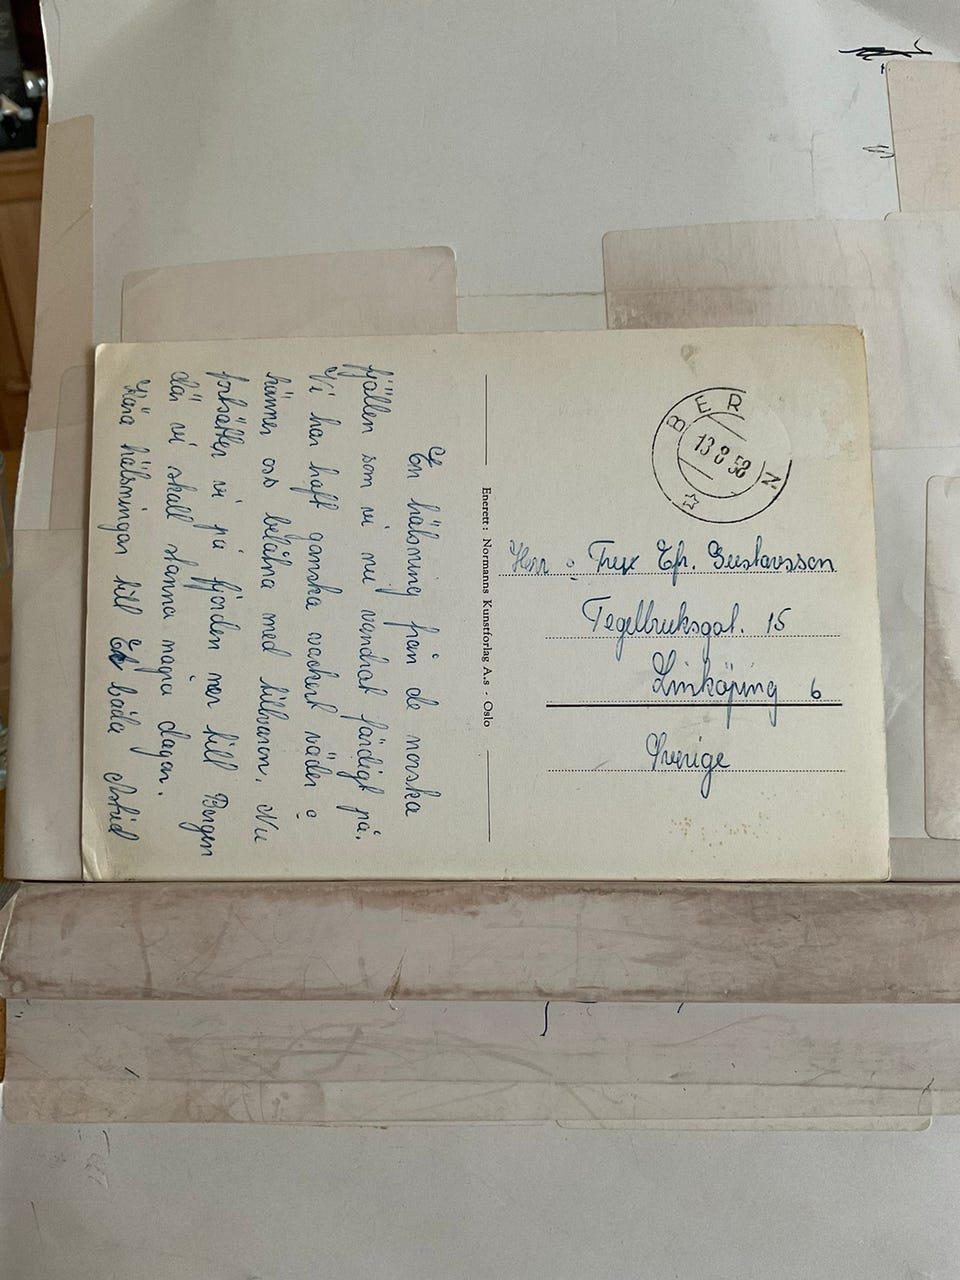 En hälsning från de norska
fjällen som vi nu vandrat färdigt på.
Vi har haft ganska vackert väder o
känner oss belåtna med tillvaron. Nu
fortsätter vi på fjorden ner till Bergen
där vi skall stanna några dagar.
Kära hälsningar till Er båda Astrid
Enerett: Normanns Kunstforlag A.s - Oslo
BER N
13 8 58
Herr o Fru Ef. Gustavsson
Tegelbruksgat. 15
Linköping 6
Sverige